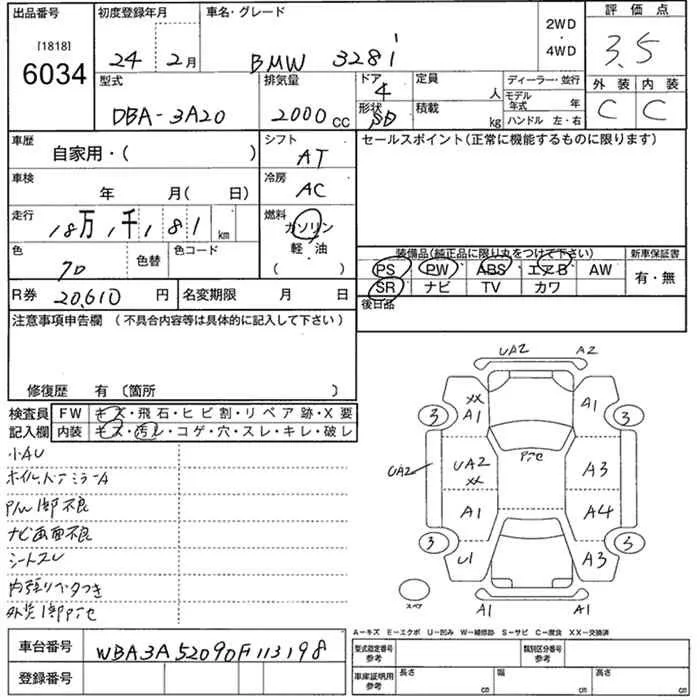 出品番号 初度登録年月 車名・グレード 2WD・4WD 評価点
[1818]
6034
24年 2月 BMW 328i 3.5
型式 排気量 ドア 4 定員 人 ディーラー・並行 外装 内装
DBA-3A20 2000cc 形状 SD 積載 kg モデル年式 年 C C
ハンドル 左・右
車歴 自家用・( ) シフト AT セールスポイント(正常に機能するものに限ります)
車検 年 月( 日) 冷房 AC
走行 18万1千181 km 燃料 ガソリン
軽・油
( )
色 色替 色コード 装備品(純正品に限り丸をつけて下さい) 新車保証書
PS PW ABS エアB AW 有・無
SR ナビ TV カワ
R券 20,610円 名変期限 月 日 後日品
注意事項申告欄(不具合内容等は具体的に記入して下さい)
修復歴 有(箇所 )
検査員 FW キズ・飛石・ヒビ割・リペア跡・X要
記入欄 内装 キズ・汚レ・コゲ・穴・スレ・キレ・破レ
小AU
P/W 1部不良
ナビ画面不良
シートスレ
内張りベタつき
UA2 A2
XX A1 A1
3 3
UA2 UA2 XX A3
A1 A4
3 U1 A3 3
スペア A1 A1
A-キズ E-エクボ U-凹み W-補修跡 S-サビ C-腐食 XX-交換済
車台番号 WBA3A52090F113198 型式指定番号 参考 類別区分番号 参考
登録番号 車庫証明用 参考 長さ cm 幅 cm 高さ cm